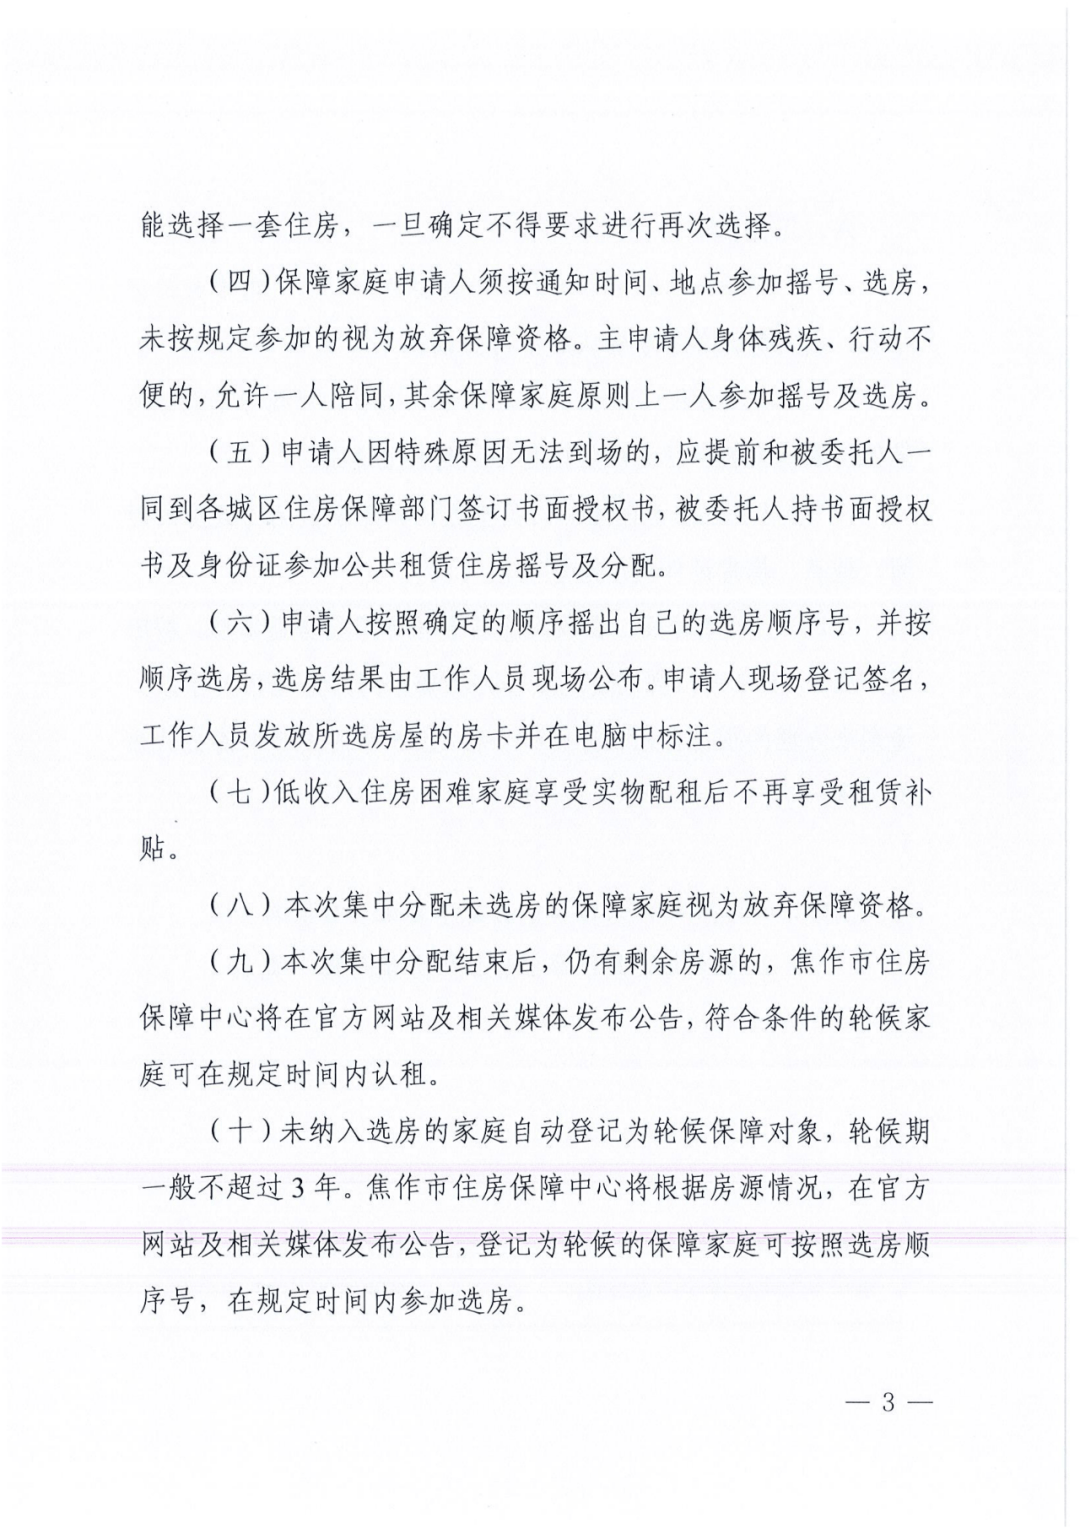 能选择一套住房，一旦确定不得要求进行再次选择。
（四）保障家庭申请人须按通知时间、地点参加摇号、选房，
未按规定参加的视为放弃保障资格。主申请人身体残疾、行动不
便的，允许一人陪同，其余保障家庭原则上一人参加摇号及选房。
（五）申请人因特殊原因无法到场的，应提前和被委托人一
同到各城区住房保障部门签订书面授权书，被委托人持书面授权
书及身份证参加公共租赁住房摇号及分配。
（六）申请人按照确定的顺序摇出自己的选房顺序号，并按
顺序选房，选房结果由工作人员现场公布。申请人现场登记签名，
工作人员发放所选房屋的房卡并在电脑中标注。
（七）低收入住房困难家庭享受实物配租后不再享受租赁补
贴。
（八）本次集中分配未选房的保障家庭视为放弃保障资格。
（九）本次集中分配结束后，仍有剩余房源的，焦作市住房
保障中心将在官方网站及相关媒体发布公告，符合条件的轮候家
庭可在规定时间内认租。
（十）未纳入选房的家庭自动登记为轮候保障对象，轮候期
一般不超过 3 年。焦作市住房保障中心将根据房源情况，在官方
网站及相关媒体发布公告，登记为轮候的保障家庭可按照选房顺
序号，在规定时间内参加选房。
— 3 —